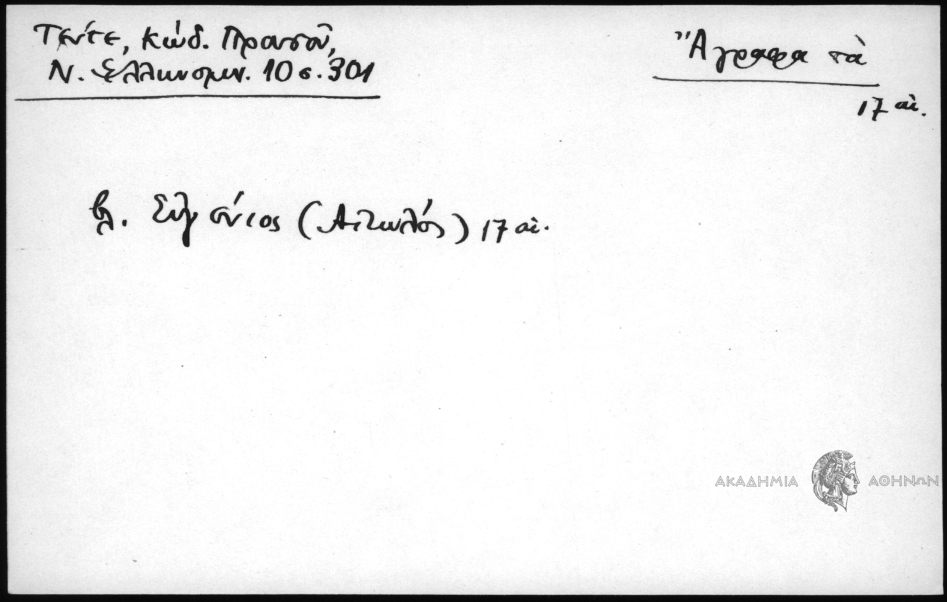 Τέντε, Κώδ. Προυσοῦ,
Ν. Ἑλληνομν. 10 σ. 301
Ἄγραφα τὰ
17 αἰ.
βλ. Εὐγένιος (Αἰτωλός) 17 αἰ.
ΑΚΑΔΗΜΙΑ ΑΘΗΝΩΝ